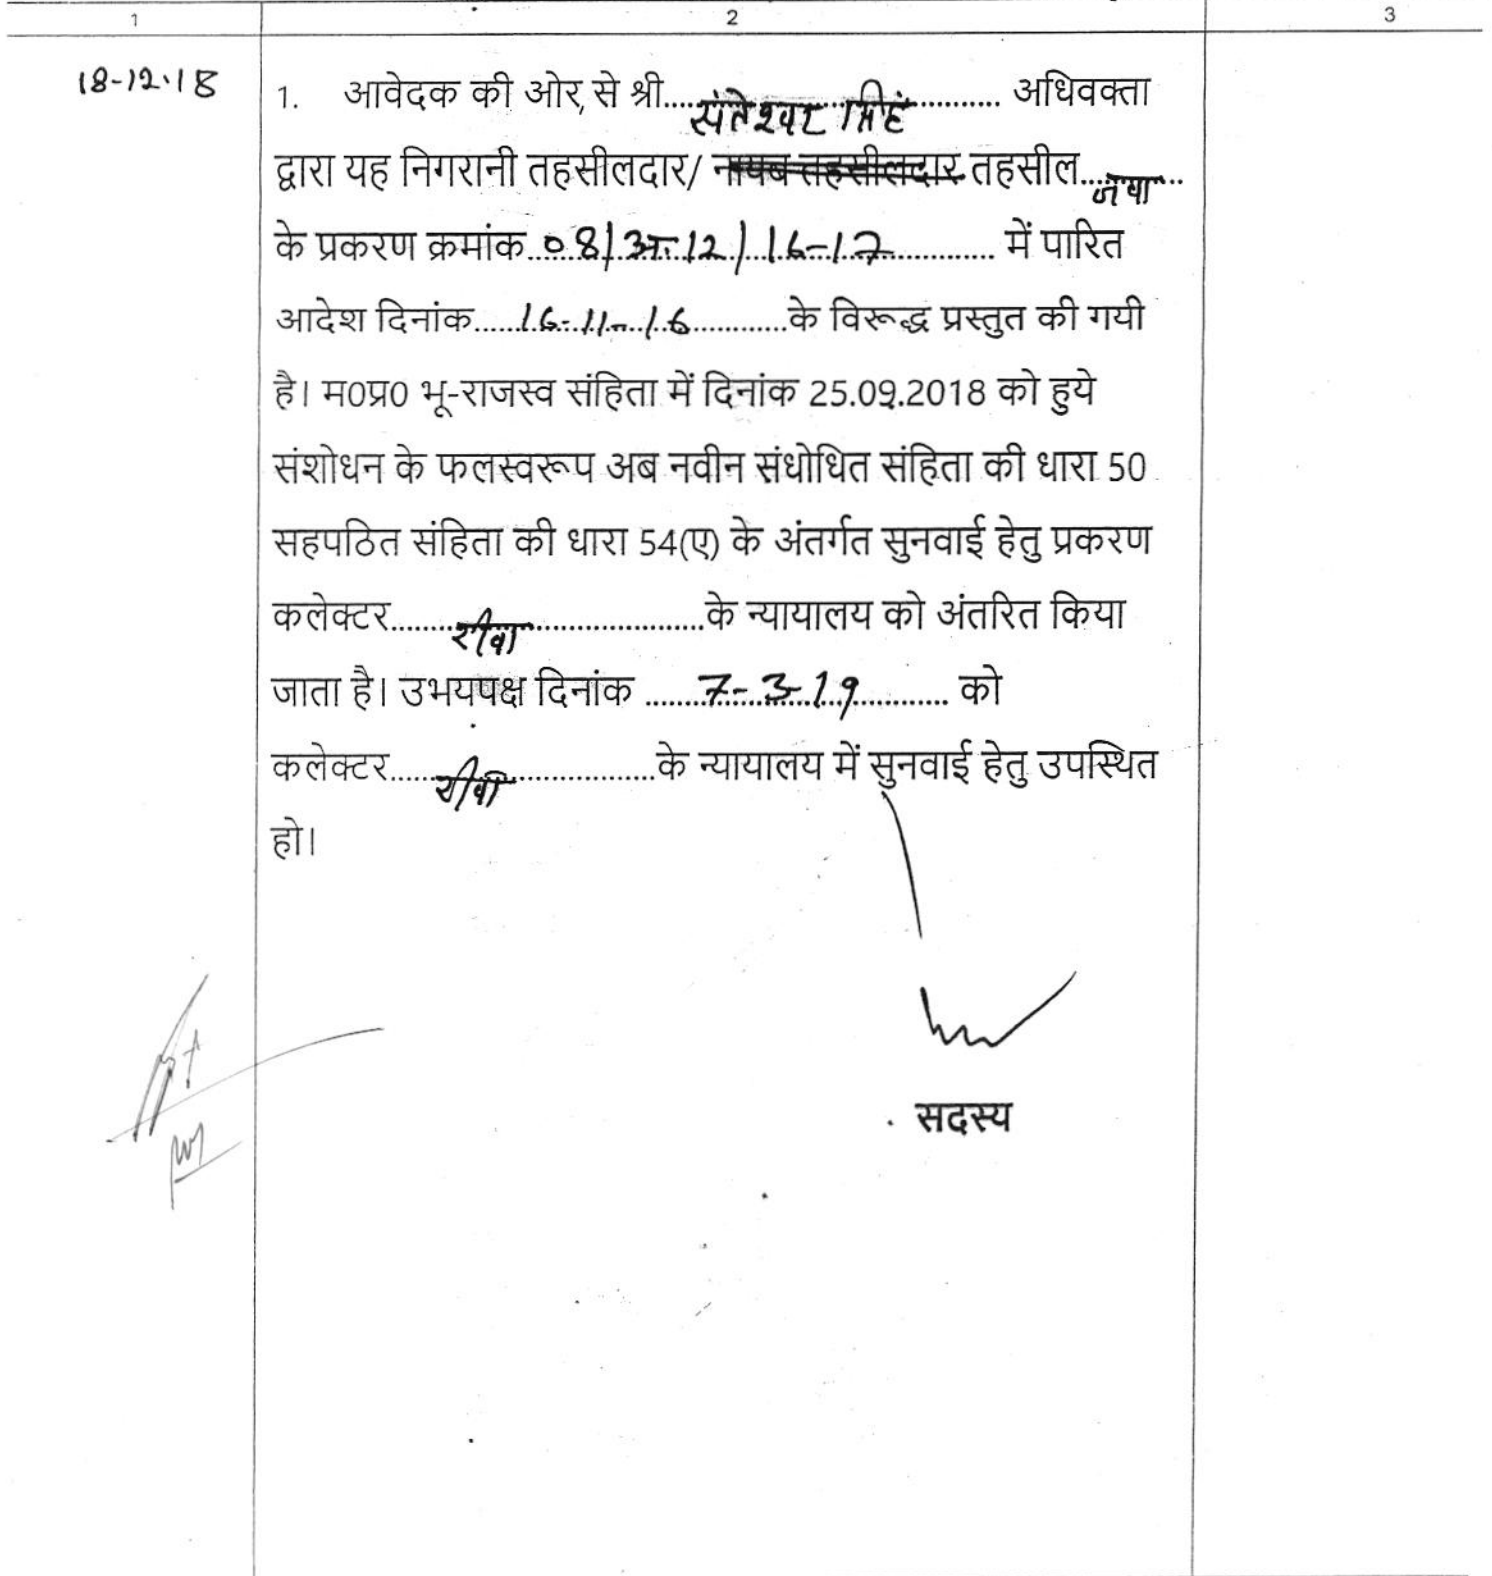 1 2 3
18-12-18
1. आवेदक की ओर से श्री.....संतेश्वर सिंह.......... अधिवक्ता
द्वारा यह निगरानी तहसीलदार/ नायब तहसीलदार तहसील....जवा....
के प्रकरण क्रमांक..08/अ-12/16-17........... में पारित
आदेश दिनांक.....16-11-16...........के विरूद्ध प्रस्तुत की गयी
है। म0प्र0 भू-राजस्व संहिता में दिनांक 25.09.2018 को हुये
संशोधन के फलस्वरूप अब नवीन संधोधित संहिता की धारा 50
सहपठित संहिता की धारा 54(ए) के अंतर्गत सुनवाई हेतु प्रकरण
कलेक्टर.......रीवा...................के न्यायालय को अंतरित किया
जाता है। उभयपक्ष दिनांक ......7-3-19.......... को
कलेक्टर......रीवा...............के न्यायालय में सुनवाई हेतु उपस्थित
हो।
सदस्य